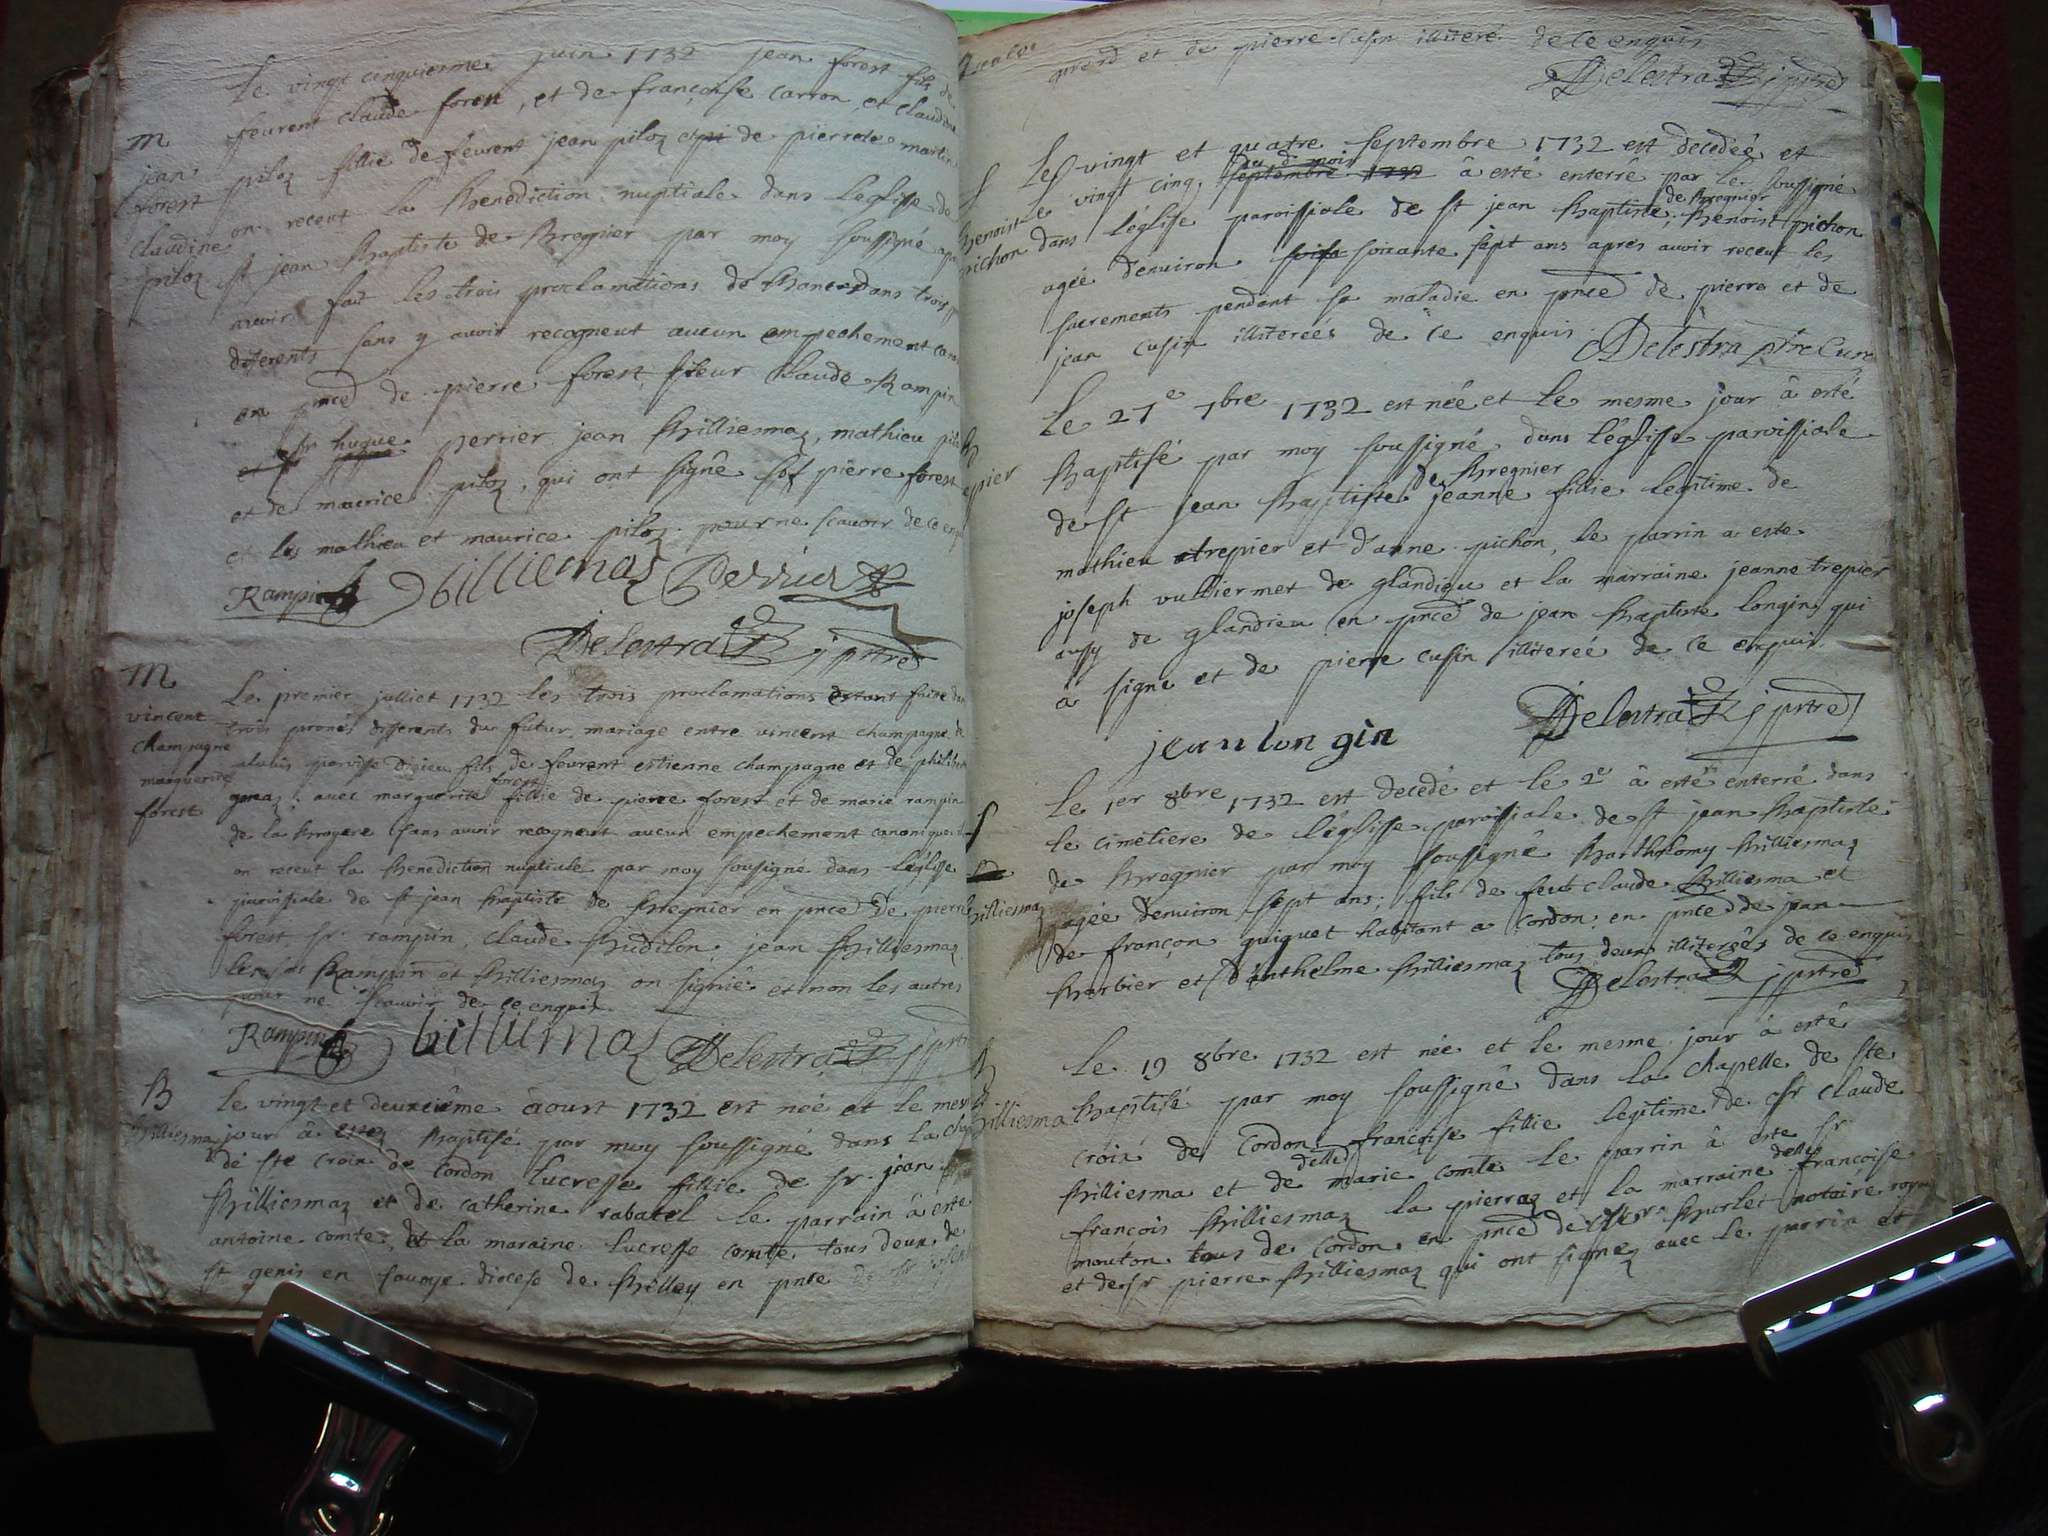 Le vingt cinquiesme juin 1732 jean forest fils de
feurent claude forest, et de françoise carron et claudine
M
jean
forest
claudine
piloz
piloz fillie de feurent jean piloz et de pierrete martin
on receut la benediction nuptiale dans leglise de
st jean baptiste de bregnier par moy soussigné apres
avoir fait les trois proclamations de bancs dans trois
diferents sans y avoir recogneut aucun empechement
en pnce de pierre forest, sieur claude Rampin
sr hugue perrier jean billiesmaz, mathieu piloz
et de maurice piloz, qui ont signé sof pierre forest
et les mathieu et maurice piloz pour ne scavoir de ce enquis
Rampin billiemaz Perrier
Delestraz jprtre
M
vincent
champagne
marguerite
forest
Le premier julliet 1732 les trois proclamations estant faite dans
trois prones differents du futur mariage entre vincent champagne de
parroisse fils de feurent estienne champagne et de philiberte
avec marguerite forest fillie de pierre forest et de marie rampin
de la bruyere sans avoir recogneut aucun empechement canonique
on receut la benediction nuptiale par moy sousigné dans léglise
paroissiale de st jean baptiste de bregnier en pnce de pierre
forest, sr rampin, claude bidilon, jean billiesmaz
les srs Rampin et billiesmaz on signée et non les autres
pour ne scavoir de ce enquis
Rampin billiimaz Delestraz jprtre
B
billiesmaz
Le vingt et deuxiême aoust 1732 est née et le mesme
jour â estez baptisé par moy soussigné dans la chapelle
de ste croix de Cordon Lucresse fillie de sr jean
billiesmaz et de catherine rabatel le parrain â esté
antoine comte, et la maraine lucresse comte tous deux de
st genis en savoye diocese de billey en pnte
et de pierre cusin illiteré de ce enquis
Delestraz jprtre
S
benoist
pichon
Le vingt et quatre septembre 1732 est decedée et
le vingt cinq du d mois septembre 1732 â esté enterré par le soussigné
dans l'église paroissiale de st jean baptiste de bregnier, benoist pichon
agée denviron soisa soixante sept ans apres avoir receut les
sacrements pendant sa maladie en pnce de pierre et de
jean cusin illiterées de ce enquis Delestra ptre Curé
B
Le 27e 7bre 1732 est née et le mesme jour â esté
baptisé par moy soussigné dans l'église paroissiale
de st jean baptiste de bregnier jeanne fillie legitime de
mathieu trepier et d'anne pichon, le parrin a esté
joseph vulliermet de glandieu et la marraine jeanne trepier
aussy de glandieu en pnce de jean baptiste longin qui
â signe et de pierre cusin illiteré de ce enquis
jean lon gin Delestraz jprtre
S
billiesmaz
Le 1er 8bre 1732 est decedé et le 2e â esté enterré dans
le cimetiere de l'église paroissiale de st jean baptiste
de bregnier par moy soussigné barthelomy billiesmaz
agée denviron sept ans, fils de feut claude billiesma et
de françon guiguet habitant a cordon, en pnce de jean
barbier et d'anthelme billiesmaz tous deux illiterées de ce enquis
Delestraz jprtre
B
billiesma
Le 19 8bre 1732 est née et le mesme jour â esté
baptisé par moy soussigné dans la chapelle de ste
croix de Cordon françoise fillie legitime de sr claude
billiesma et de delle marie comte le parrin â esté sr
françois billiesmaz la pierraz et la marraine delle françoise
mouton tous de Cordon en pnce de burlet notaire royal
et de sr pierre billiesmaz qui ont signez avec le parrin et